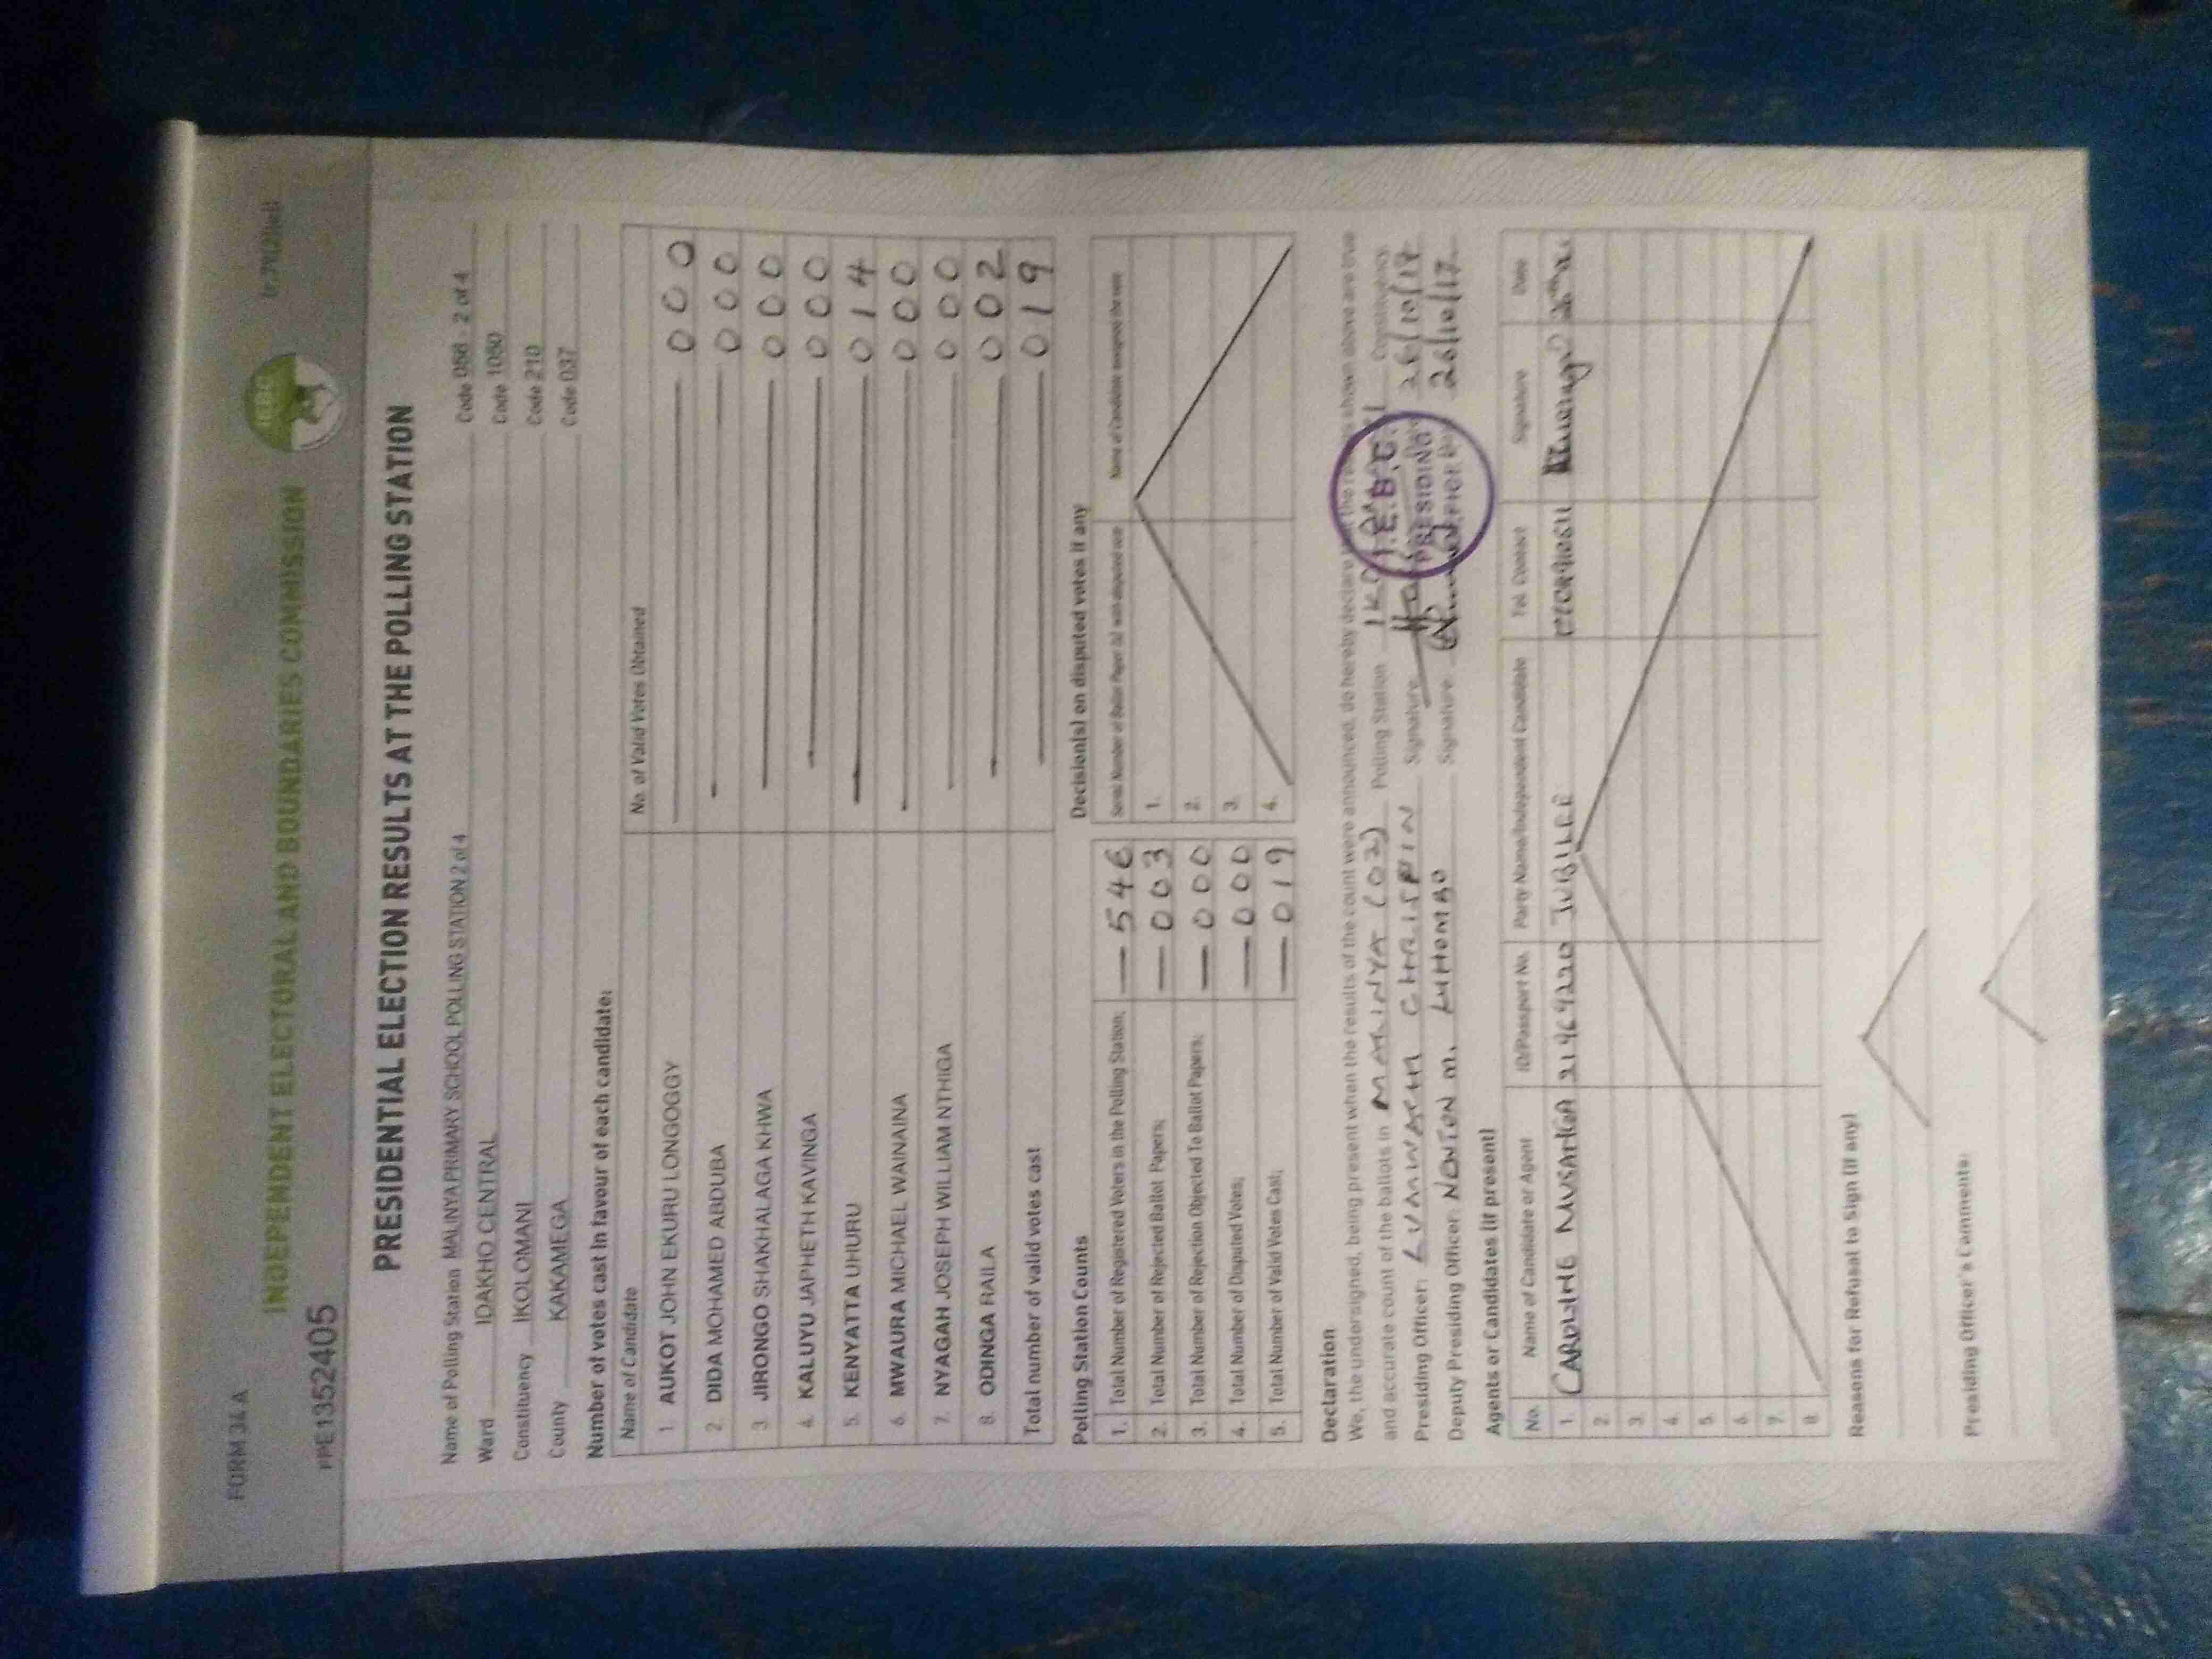 FORM 34 A
INDEPENDENT ELECTORAL AND BOUNDARIES COMMISSION
IEBC
PE1352405
PRESIDENTIAL ELECTION RESULTS AT THE POLLING STATION
Name of Polling Station MALINYA PRIMARY SCHOOL POLLING STATION 2 of 4 Code 066 2 of 4
Ward IDAKHO CENTRAL Code 1060
Constituency IKOLOMANI Code 210
County KAKAMEGA Code 037
Number of votes cast in favour of each candidate:
Name of Candidate No. of Valid Votes Obtained
1. AUKOT JOHN EKURU LONGOGGY 000
2. DIDA MOHAMED ABDUBA 000
3. JIRONGO SHAKHALAGA KHWA 000
4. KALUYU JAPHETH KAVINGA 000
5. KENYATTA UHURU 014
6. MWAURA MICHAEL WAINAINA 000
7. NYAGAH JOSEPH WILLIAM NTHIGA 000
8. ODINGA RAILA 002
Total number of valid votes cast 019
Polling Station Counts
1. Total Number of Registered Voters in the Polling Station; 546
2. Total Number of Rejected Ballot Papers; 003
3. Total Number of Rejection Objected To Ballot Papers; 000
4. Total Number of Disputed Votes; 000
5. Total Number of Valid Votes Cast; 019
Decision(s) on disputed votes if any
Serial Number of Ballot Paper (s) with disputed vote Name of Candidate assigned the vote
1.
2.
3.
4.
Declaration
We, the undersigned, being present when the results of the count were announced, do hereby declare that the results shown above are true
and accurate count of the ballots in MALINYA (02) Polling Station Constituency.
Presiding Officer: LUMWACHI CHRISPIN Signature 26/10/17
Deputy Presiding Officer: NEWTON M. LUHOMBO Signature 26/10/17
I.E.B.C.
PRESIDING
OFFICER
Agents or Candidates (if present)
No. Name of Candidate or Agent ID/Passport No. Party Name/Independent Candidate Tel. Contact Signature Date
1. CAROLINE MUSAHGA JUBILEE
2.
3.
4.
5.
6.
7.
8.
Reasons for Refusal to Sign (if any)
Presiding Officer's Comments: